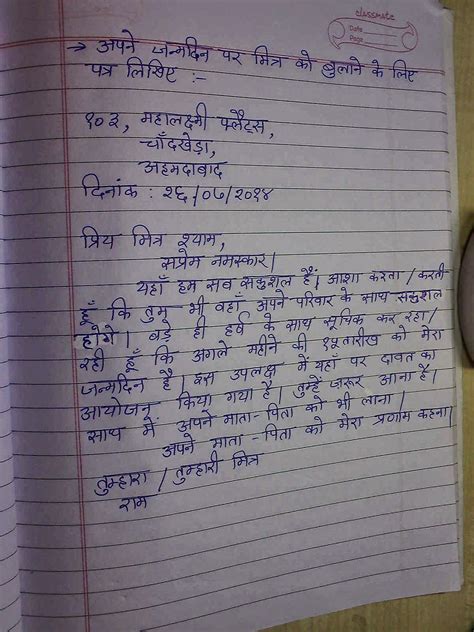 classmate
Date
Page
→ अपने जन्मदिन पर मित्र को बुलाने के लिए
पत्र लिखिए :-
१०२, महालक्ष्मी फ्लैट्स,
चाँदखेड़ा,
अहमदाबाद
दिनांक : २६/०७/२०१४
प्रिय मित्र श्याम,
सप्रेम नमस्कार।
यहाँ हम सब सकुशल हैं। आशा करता / करती
हूँ कि तुम भी वहाँ अपने परिवार के साथ सकुशल
होगे। बड़े ही हर्ष के साथ सूचिक कर रहा/
रही हूँ कि अगले महीने की १५ तारीख को मेरा
जन्मदिन है। इस उपलक्ष में यहाँ पर दावत का
आयोजन किया गया है। तुम्हें जरूर आना है।
साथ में अपने माता-पिता को भी लाना।
अपने माता-पिता को मेरा प्रणाम कहना।
तुम्हारा / तुम्हारी मित्र
राम